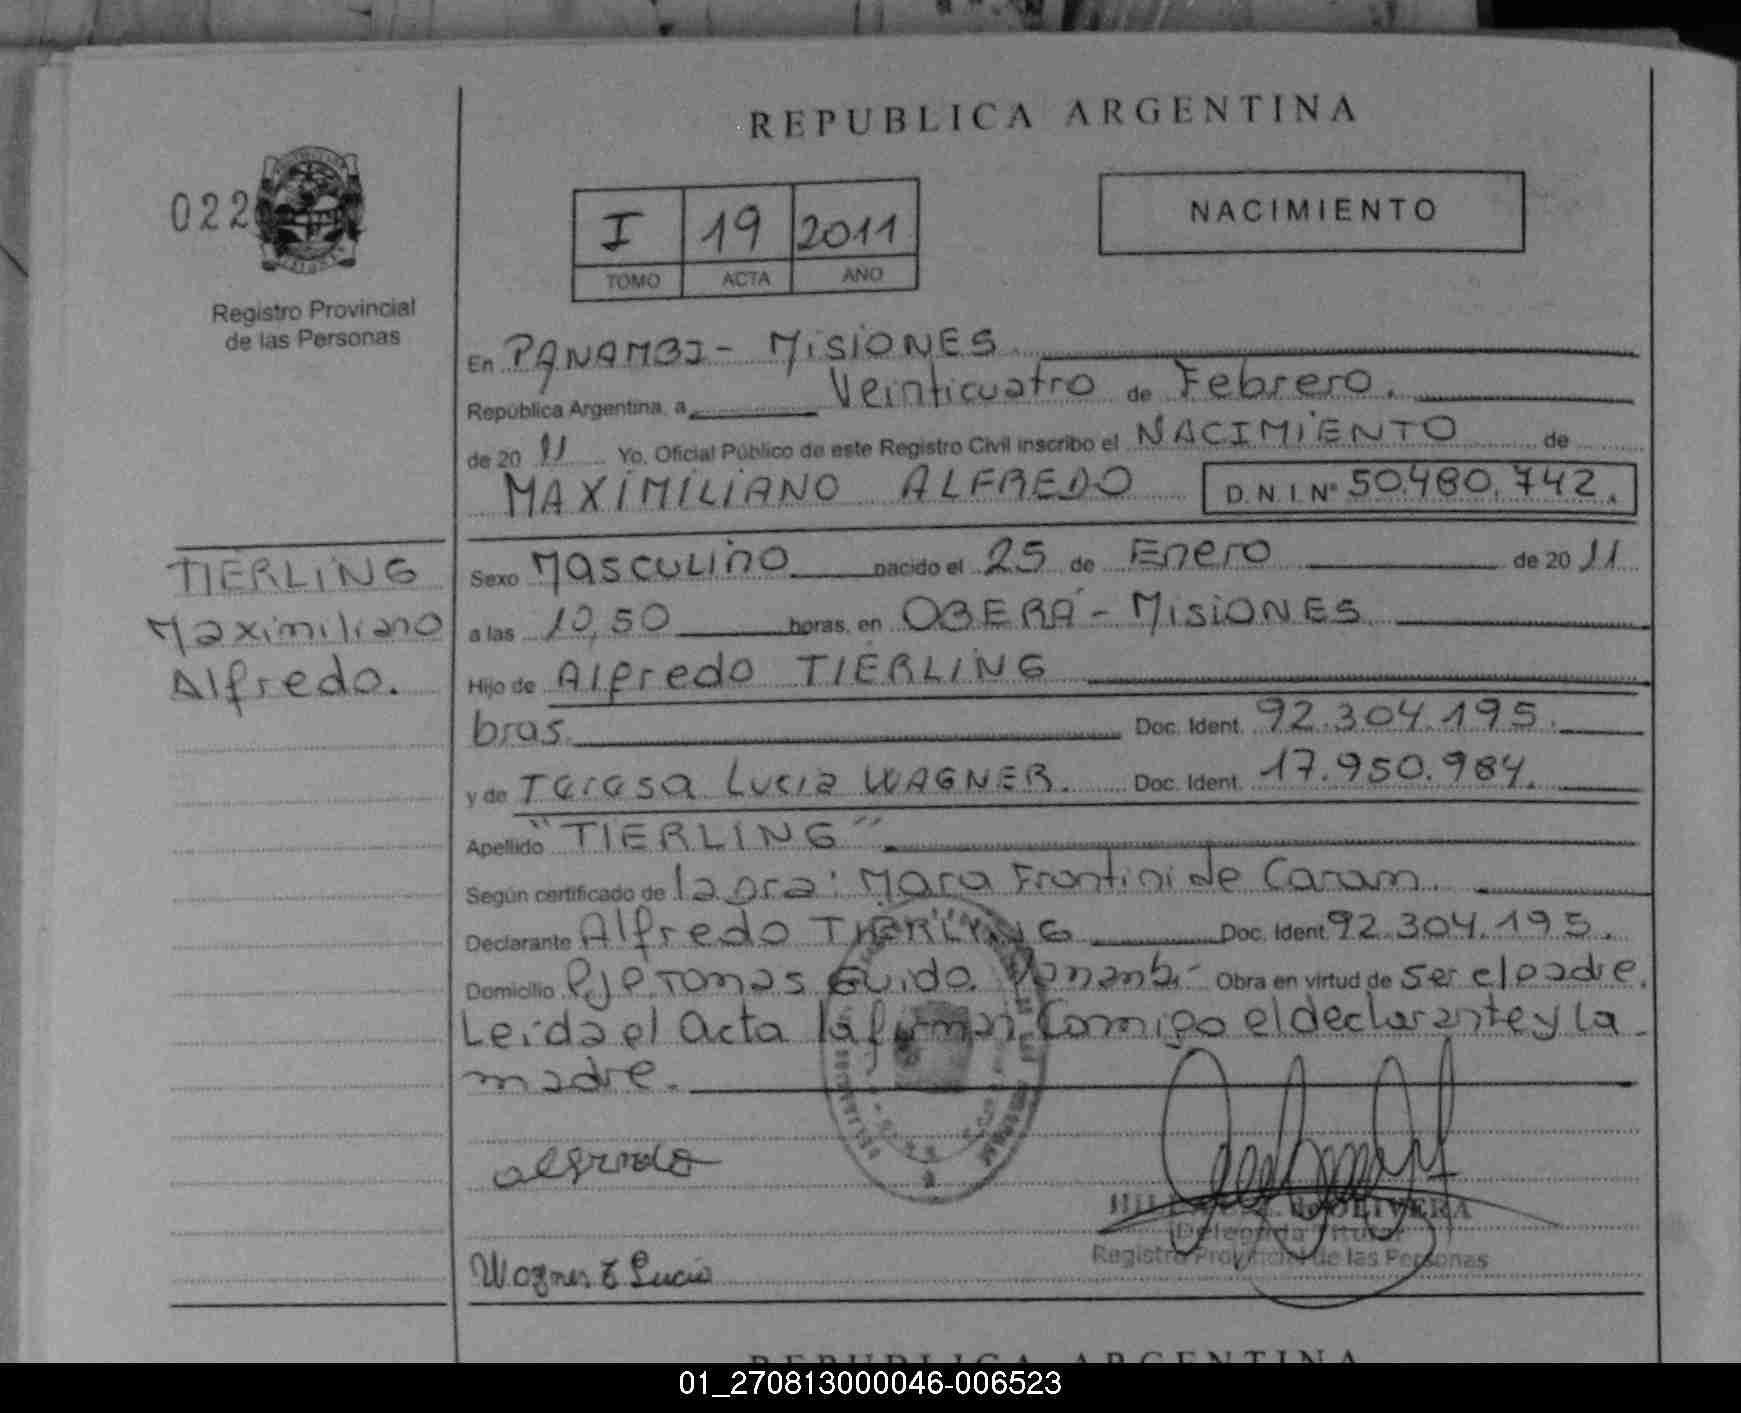 REPUBLICA ARGENTINA
022
I 19 2011
TOMO ACTA AÑO
NACIMIENTO
Registro Provincial
de las Personas
En PANAMBI - MISIONES
República Argentina, a Veinticuatro de Febrero.
de 2011 Yo, Oficial Público de este Registro Civil inscribo el NACIMIENTO de
MAXIMILIANO ALFREDO D.N.I. Nº 50.480.742.
TIERLING
Maximiliano
Alfredo.
Sexo Masculino nacido el 25 de Enero de 2011
a las 10,50 horas, en OBERÁ - MISIONES.
Hijo de Alfredo TIERLING
bras. Doc. Ident. 92.304.195.
y de Teresa Lucia WAGNER. Doc. Ident. 17.950.984.
Apellido "TIERLING"
Según certificado de la Dra: Mara Frontini de Caram.
Declarante Alfredo TIERLING Doc. Ident. 92.304.195.
Domicilio Pje. Tomas Guido. Panambi- Obra en virtud de ser el padre.
Leida el Acta la firman Conmigo el declarante y la
madre.
alfredo
OLIVERA
Delegada Titular
Registro Provincial de las Personas
Wagner T Lucia
REPUBLICA ARGENTINA
01_270813000046-006523